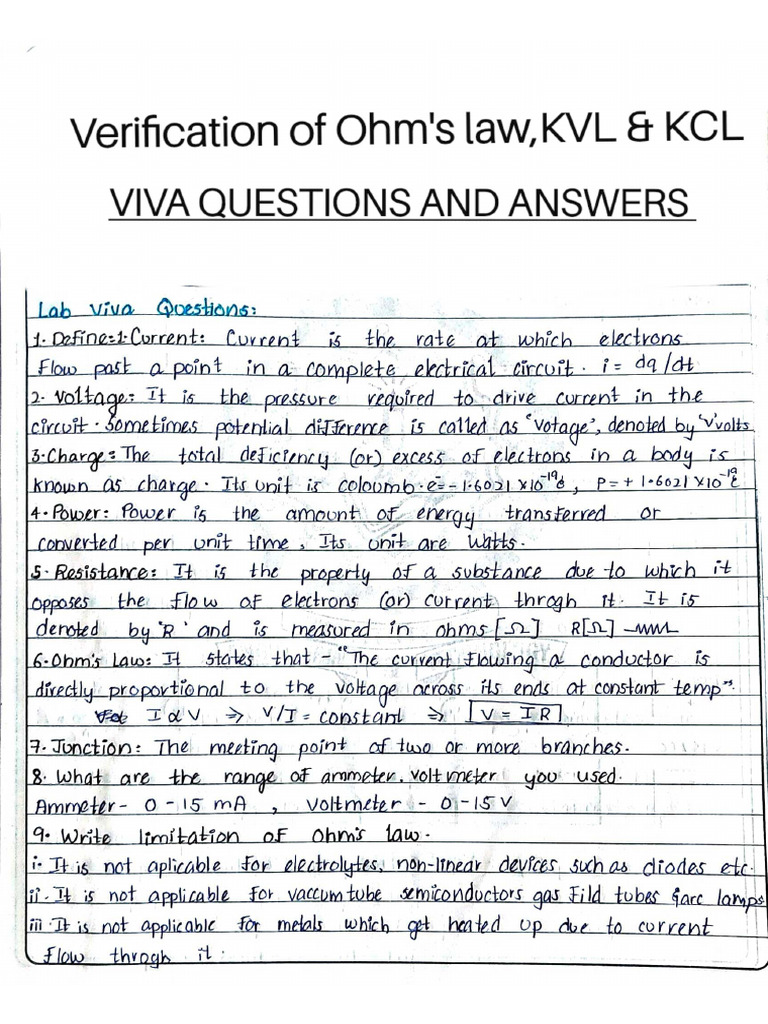 Verification of Ohm's law,KVL & KCL
VIVA QUESTIONS AND ANSWERS
Lab Viva Questions:
1. Define:1.Current: Current is the rate at which electrons
Flow past a point in a complete electrical circuit. i = dq/dt
2. Voltage: It is the pressure required to drive current in the
circuit. Sometimes potential difference is called as 'votage', denoted by 'v'volts
3.Charge: The total deficiency (or) excess of electrons in a body is
known as charge. Its unit is coloumb. e = -1.6021 x10⁻¹⁹c, P = + 1.6021 x10⁻¹⁹c
4.Power: Power is the amount of energy transferred or
converted per unit time, Its unit are Watts.
5. Resistance: It is the property of a substance due to which it
opposes the flow of electrons (or) current throgh it. It is
denoted by 'R' and is measured in ohms [Ω] R[Ω]
6.Ohm's Law: It states that - "The current flowing a conductor is
directly proportional to the voltage across its ends at constant temp".
I ∝ V ⇒ V/I = constant ⇒ V = IR
7. Junction: The meeting point of two or more branches.
8. What are the range of ammeter, voltmeter you used.
Ammeter - 0 - 15 mA , Voltmeter - 0-15 V
9. Write limitation of Ohm's law.
i. It is not aplicable for electrolytes, non-linear devices, such as diodes etc.
ii. It is not applicable for vaccum tube semiconductors gas fild tubes & arc lamps
iii. It is not applicable for metals which get heated up due to current
flow throgh it.